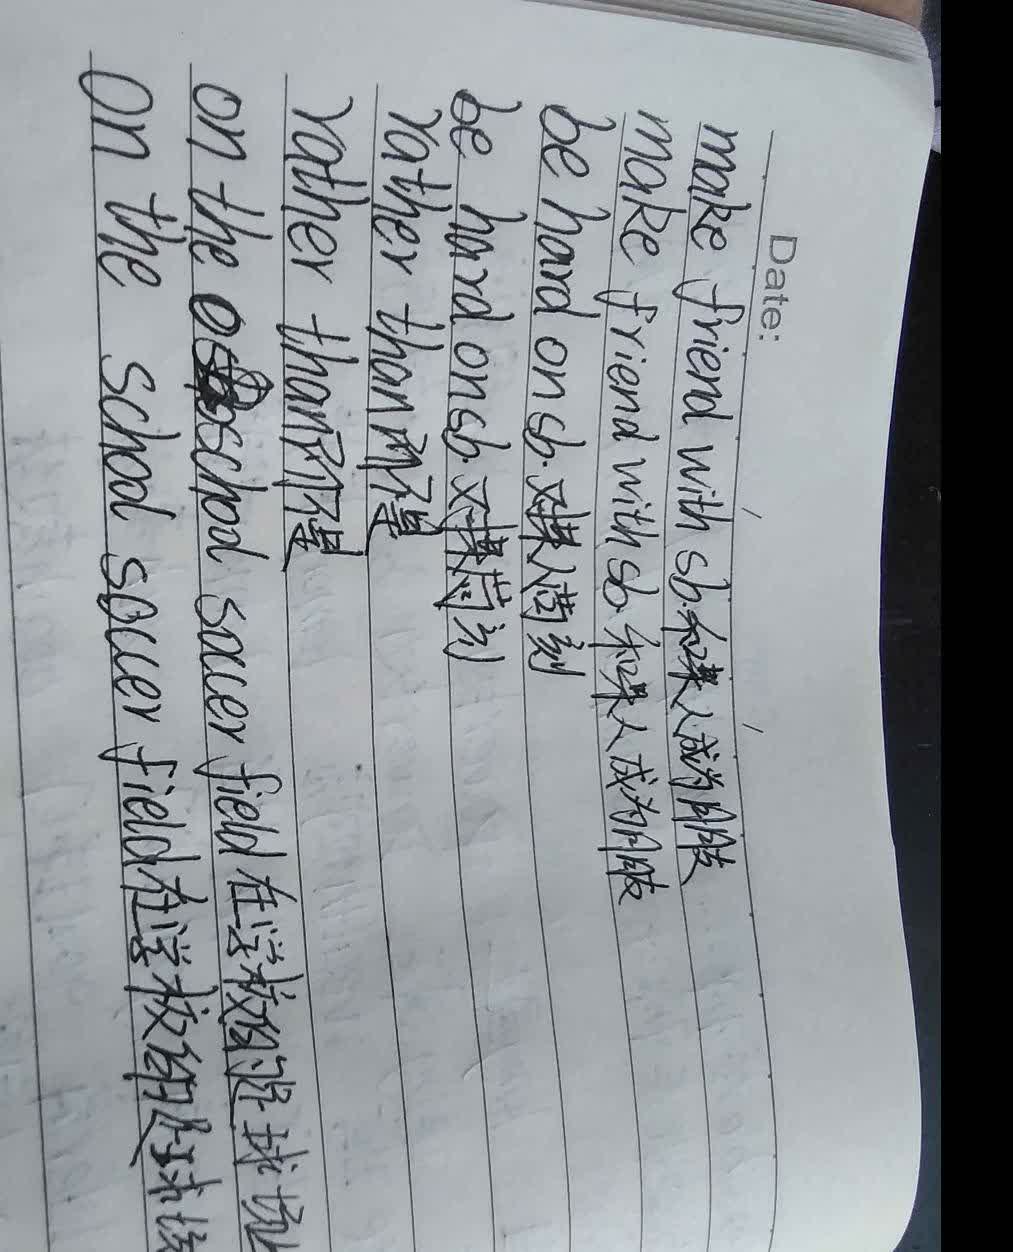 Date:
make friend with sb.和某人成为朋友
make friend with sb.和某人成为朋友
be hard on sb.对某人苛刻
be hard on sb.对某苛刻
rather than而不是
rather than而不是
on the school soccer field在学校的足球场
on the school soccer field在学校的足球场